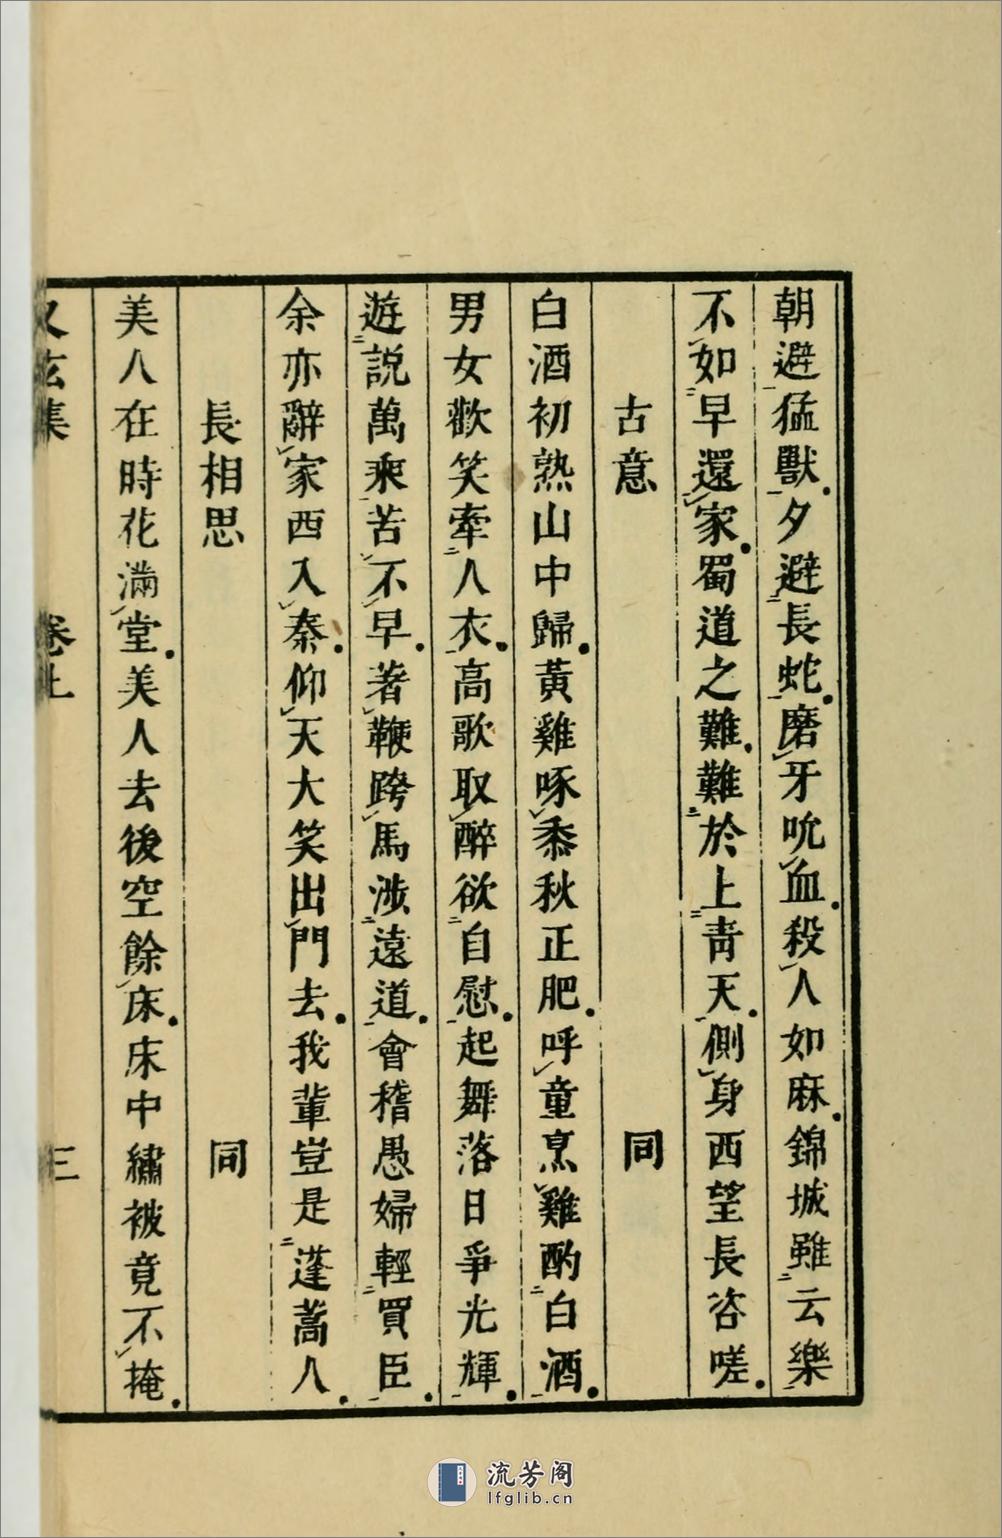 朝避猛獸夕避長蛇磨牙吮血殺人如麻錦城雖云樂
不如早還家蜀道之難難於上青天側身西望長咨嗟
古意　同
白酒初熟山中歸黃雞啄黍秋正肥呼童烹雞酌白酒
男女歡笑牽人衣高歌取醉欲自慰起舞落日爭光輝
遊說萬乘苦不早著鞭跨馬涉遠道會稽愚婦輕買臣
余亦辭家西入秦仰天大笑出門去我輩豈是蓬蒿人
長相思　同
美人在時花滿堂美人去後空餘床床中繡被竟不掩
又玄集　卷上　三
流芳阁
lfglib.cn